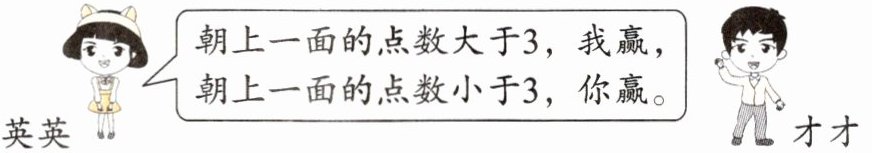 朝上一面的点数大于3，我赢，
朝上一面的点数小于3，你赢。
英英
才才